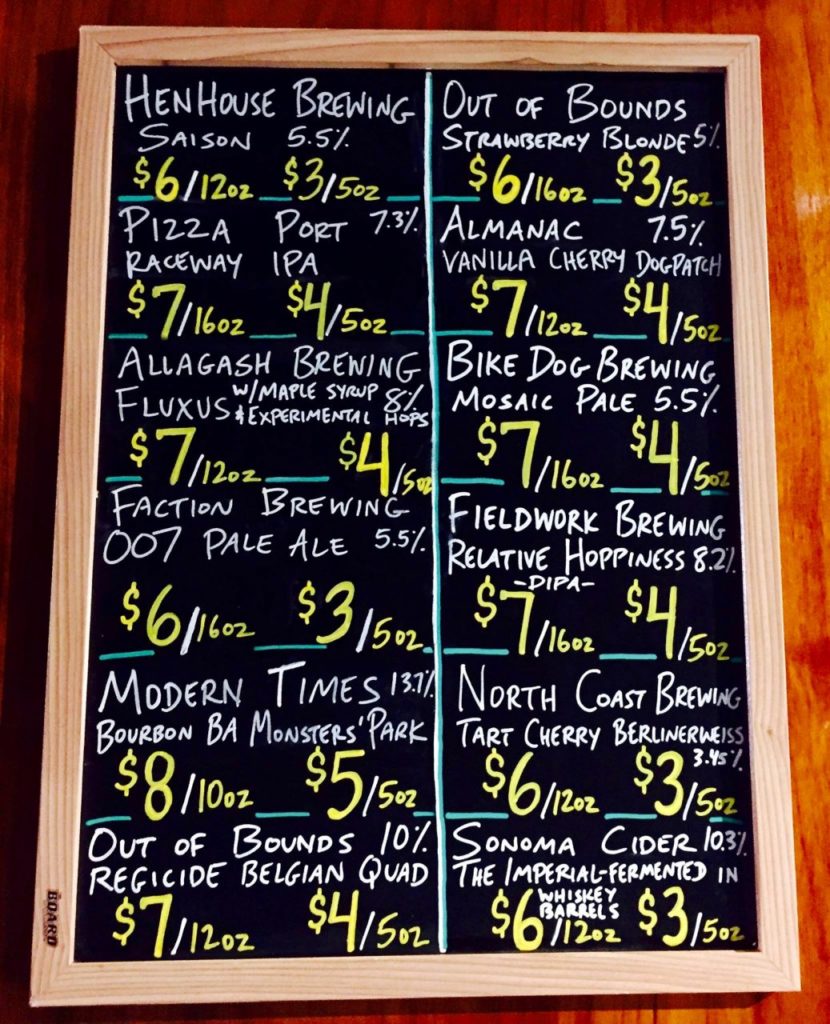 HENHOUSE BREWING
SAISON 5.5%
$6/12oz $3/5oz
PIZZA PORT 7.3%
RACEWAY IPA
$7/16oz $4/5oz
ALLAGASH BREWING
FLUXUS W/MAPLE SYRUP & EXPERIMENTAL HOPS 8%
$7/12oz $4/5oz
FACTION BREWING
007 PALE ALE 5.5%
$6/16oz $3/5oz
MODERN TIMES 13.7%
BOURBON BA MONSTERS' PARK
$8/10oz $5/5oz
OUT OF BOUNDS 10%
REGICIDE BELGIAN QUAD
$7/12oz $4/5oz
OUT OF BOUNDS
STRAWBERRY BLONDE 5%
$6/16oz $3/5oz
ALMANAC 7.5%
VANILLA CHERRY DOGPATCH
$7/12oz $4/5oz
BIKE DOG BREWING
MOSAIC PALE 5.5%
$7/16oz $4/5oz
FIELDWORK BREWING
RELATIVE HOPPINESS 8.2%
-DIPA-
$7/16oz $4/5oz
NORTH COAST BREWING
TART CHERRY BERLINERWEISS
3.45%
$6/12oz $3/5oz
SONOMA CIDER 10.3%
THE IMPERIAL-FERMENTED IN
WHISKEY
BARRELS
$6/12oz $3/5oz
BOARD